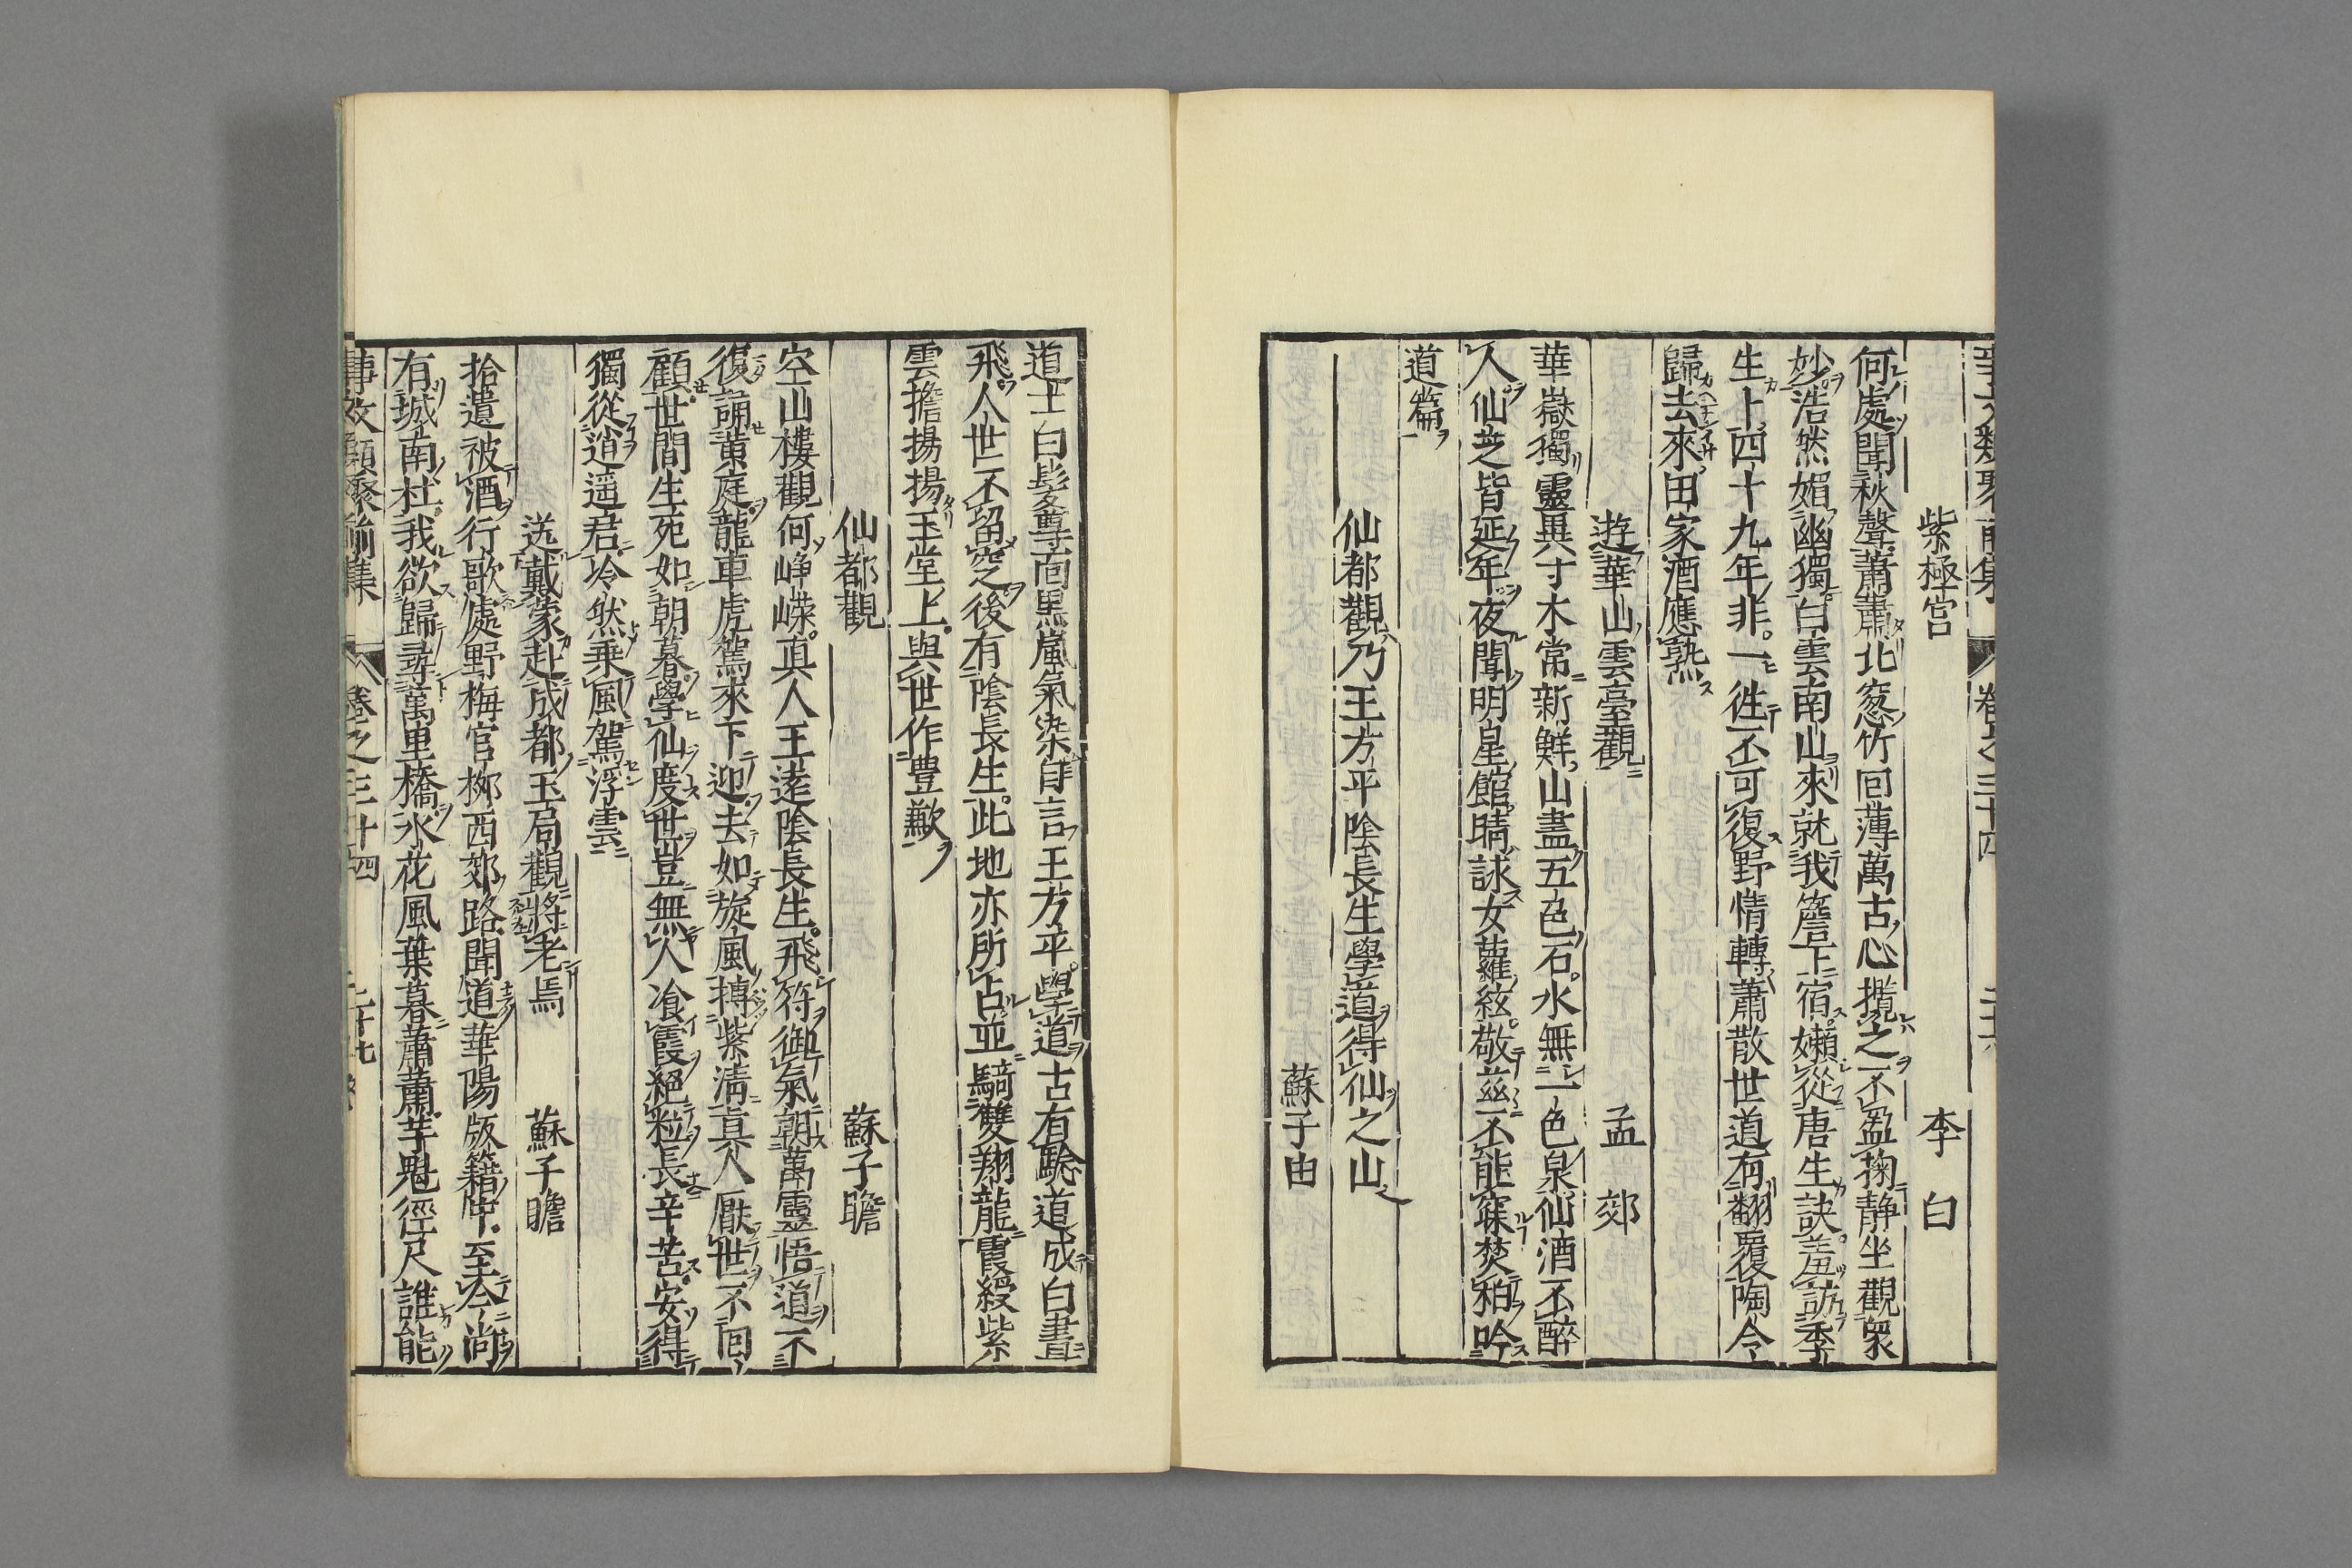 紫極宮　李白
何處聞秋聲蕭蕭北窓竹回薄萬古心攬之不盈掬静坐觀衆
妙浩然媚幽獨白雲南山來就我簷下宿嬾從唐生訣羞訪季
生卜四十九年非一徃不可復野情轉蕭散世道有翻覆陶令
歸去來田家酒應熟
遊華山雲臺觀　孟郊
華嶽獨靈異寸木常新鮮山盡五色石水無一色泉仙酒不醉
人仙芝皆延年夜聞明星館時詠女蘿絃敬兹不能寐焚柏吟
道篇
仙都觀乃王方平陰長生學道得仙之山
蘇子由
道士白髮尊面黒嵐氣染自言王方平學道古有驗道成白晝
飛人世不留窆後有陰長生此地亦所占並騎雙翔龍霞綬紫
雲擔揚揚玉堂上與世作豊歉
仙都觀　蘇子瞻
空山樓觀何崢嶸真人王逺陰長生飛符御氣朝萬靈悟道不
復誦黄庭龍車虎駕來下迎去如旋風搏紫淸真人厭世不回
顧世間生死如朝暮學仙度世豈無人飡霞絕粒長辛苦安得
獨從逍遥君冷然乘風駕浮雲
送戴蒙赴成都玉局觀將老焉　蘇子瞻
拾遺被酒行歌處野梅官栁西郊路聞道華陽版籍中至今尚
有城南杜我欲歸尋萬里橋水花風葉暮蕭蕭芋魁徑尺誰能
事文類聚前集　卷之三十四　二十七